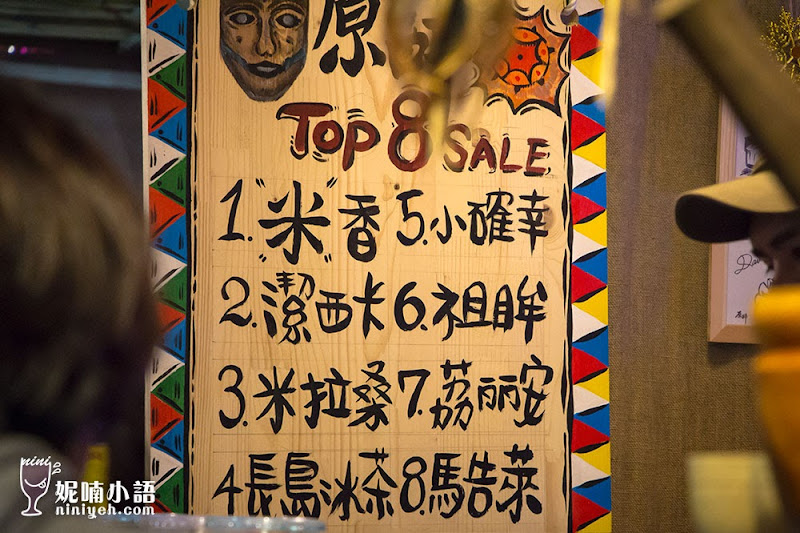 原
TOP 8 SALE
1. "米"香 5. 小確幸
2. 潔西卡 6. 祖眸
3. 米拉桑 7. 荔丽安
4. 長島冰茶 8. 馬告萊
nini
妮喃小語
niniyeh.com